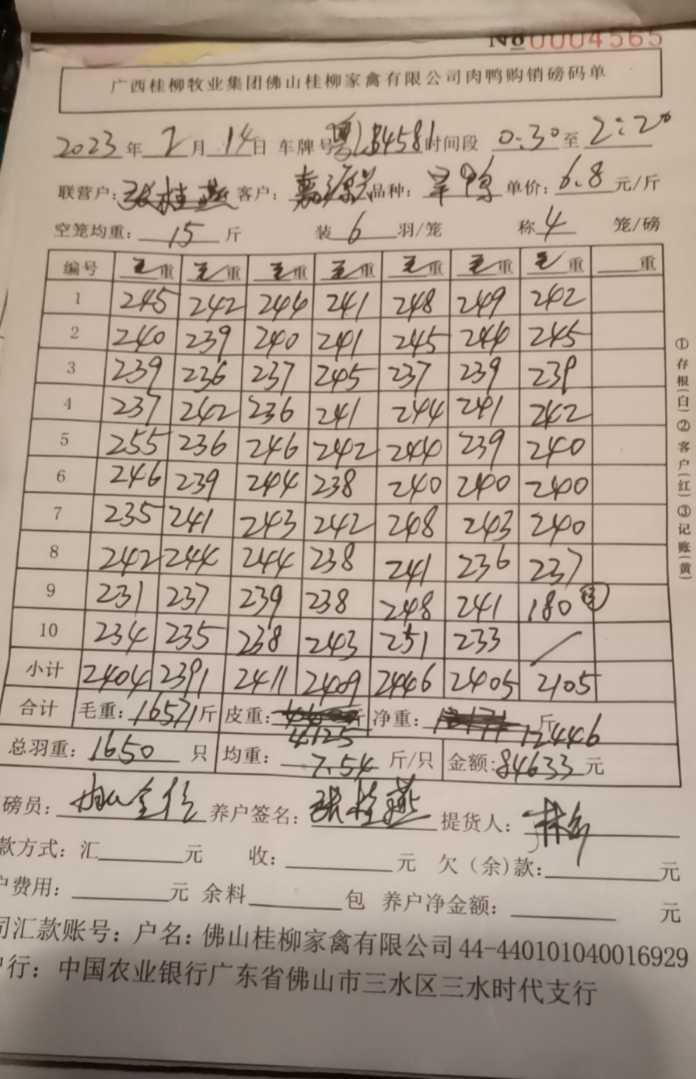 No 0004565
广西桂柳牧业集团佛山桂柳家禽有限公司肉鸭购销磅码单
2023年 2月 14日 车牌号 粤L84581 时间段 0:30 至 2:20
联营户: 张桂燕 客户: 品种: 单价: 6.8 元/斤
空笼均重: 15 斤 装 6 羽/笼 称 4 笼/磅
编号 毛重 毛重 毛重 毛重 毛重 毛重 毛重 重
1 245 242 244 241 248 249 242
2 240 239 240 241 245 244 245
3 239 236 237 245 237 239 239
4 237 242 236 241 244 241 242
5 255 236 246 242 244 239 240
6 246 239 244 238 240 240 240
7 235 241 243 242 248 243 240
8 242 244 244 238 241 236 237
9 231 237 239 238 248 241 180 ③
10 234 235 238 243 251 233 /
小计 2404 2391 2411 2409 2446 2405 2105
合计 毛重: 16571 斤 皮重: 4125 净重: 12446 斤
总羽重: 1650 只 均重: 7.54 斤/只 金额: 84633 元
磅员: 养户签名: 张桂燕 提货人:
款方式: 汇 元 收: 元 欠(余)款: 元
户费用: 元 余料 包 养户净金额: 元
司汇款账号: 户名: 佛山桂柳家禽有限公司 44-440101040016929
户行: 中国农业银行广东省佛山市三水区三水时代支行
①存根(白)②客户(红)③记账(黄)